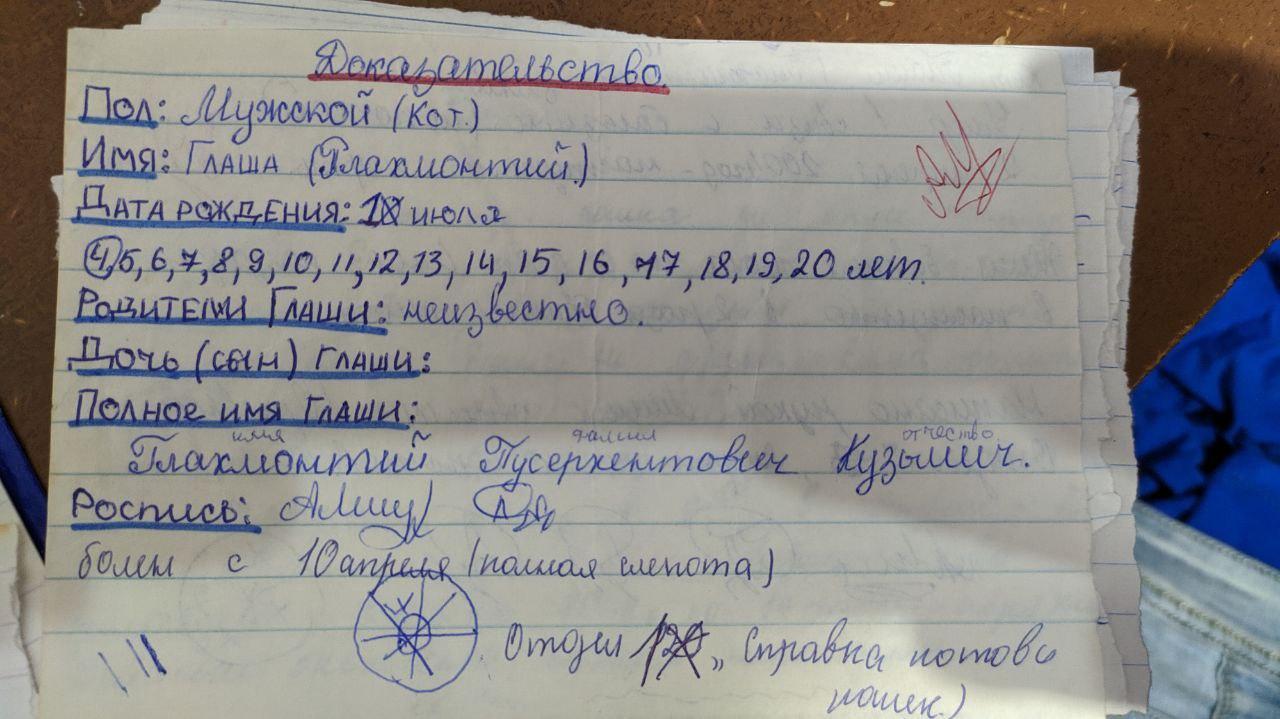 Доказательство.
Пол: Мужской (Кот.)
Имя: Глаша (Глахмонтий.)
Дата рождения: 10 июля
4, 5, 6, 7, 8, 9, 10, 11, 12, 13, 14, 15, 16, 17, 18, 19, 20 лет.
Родители Глаши: неизвестно.
Дочь (сын) Глаши:
Полное имя Глаши:
имя фамил отчество
Глахмонтий Пусерхентович Кузьмич.
Роспись:
болен с 10 апреля (полная слепота)
Отдел „ Справка котов и
кошек.)